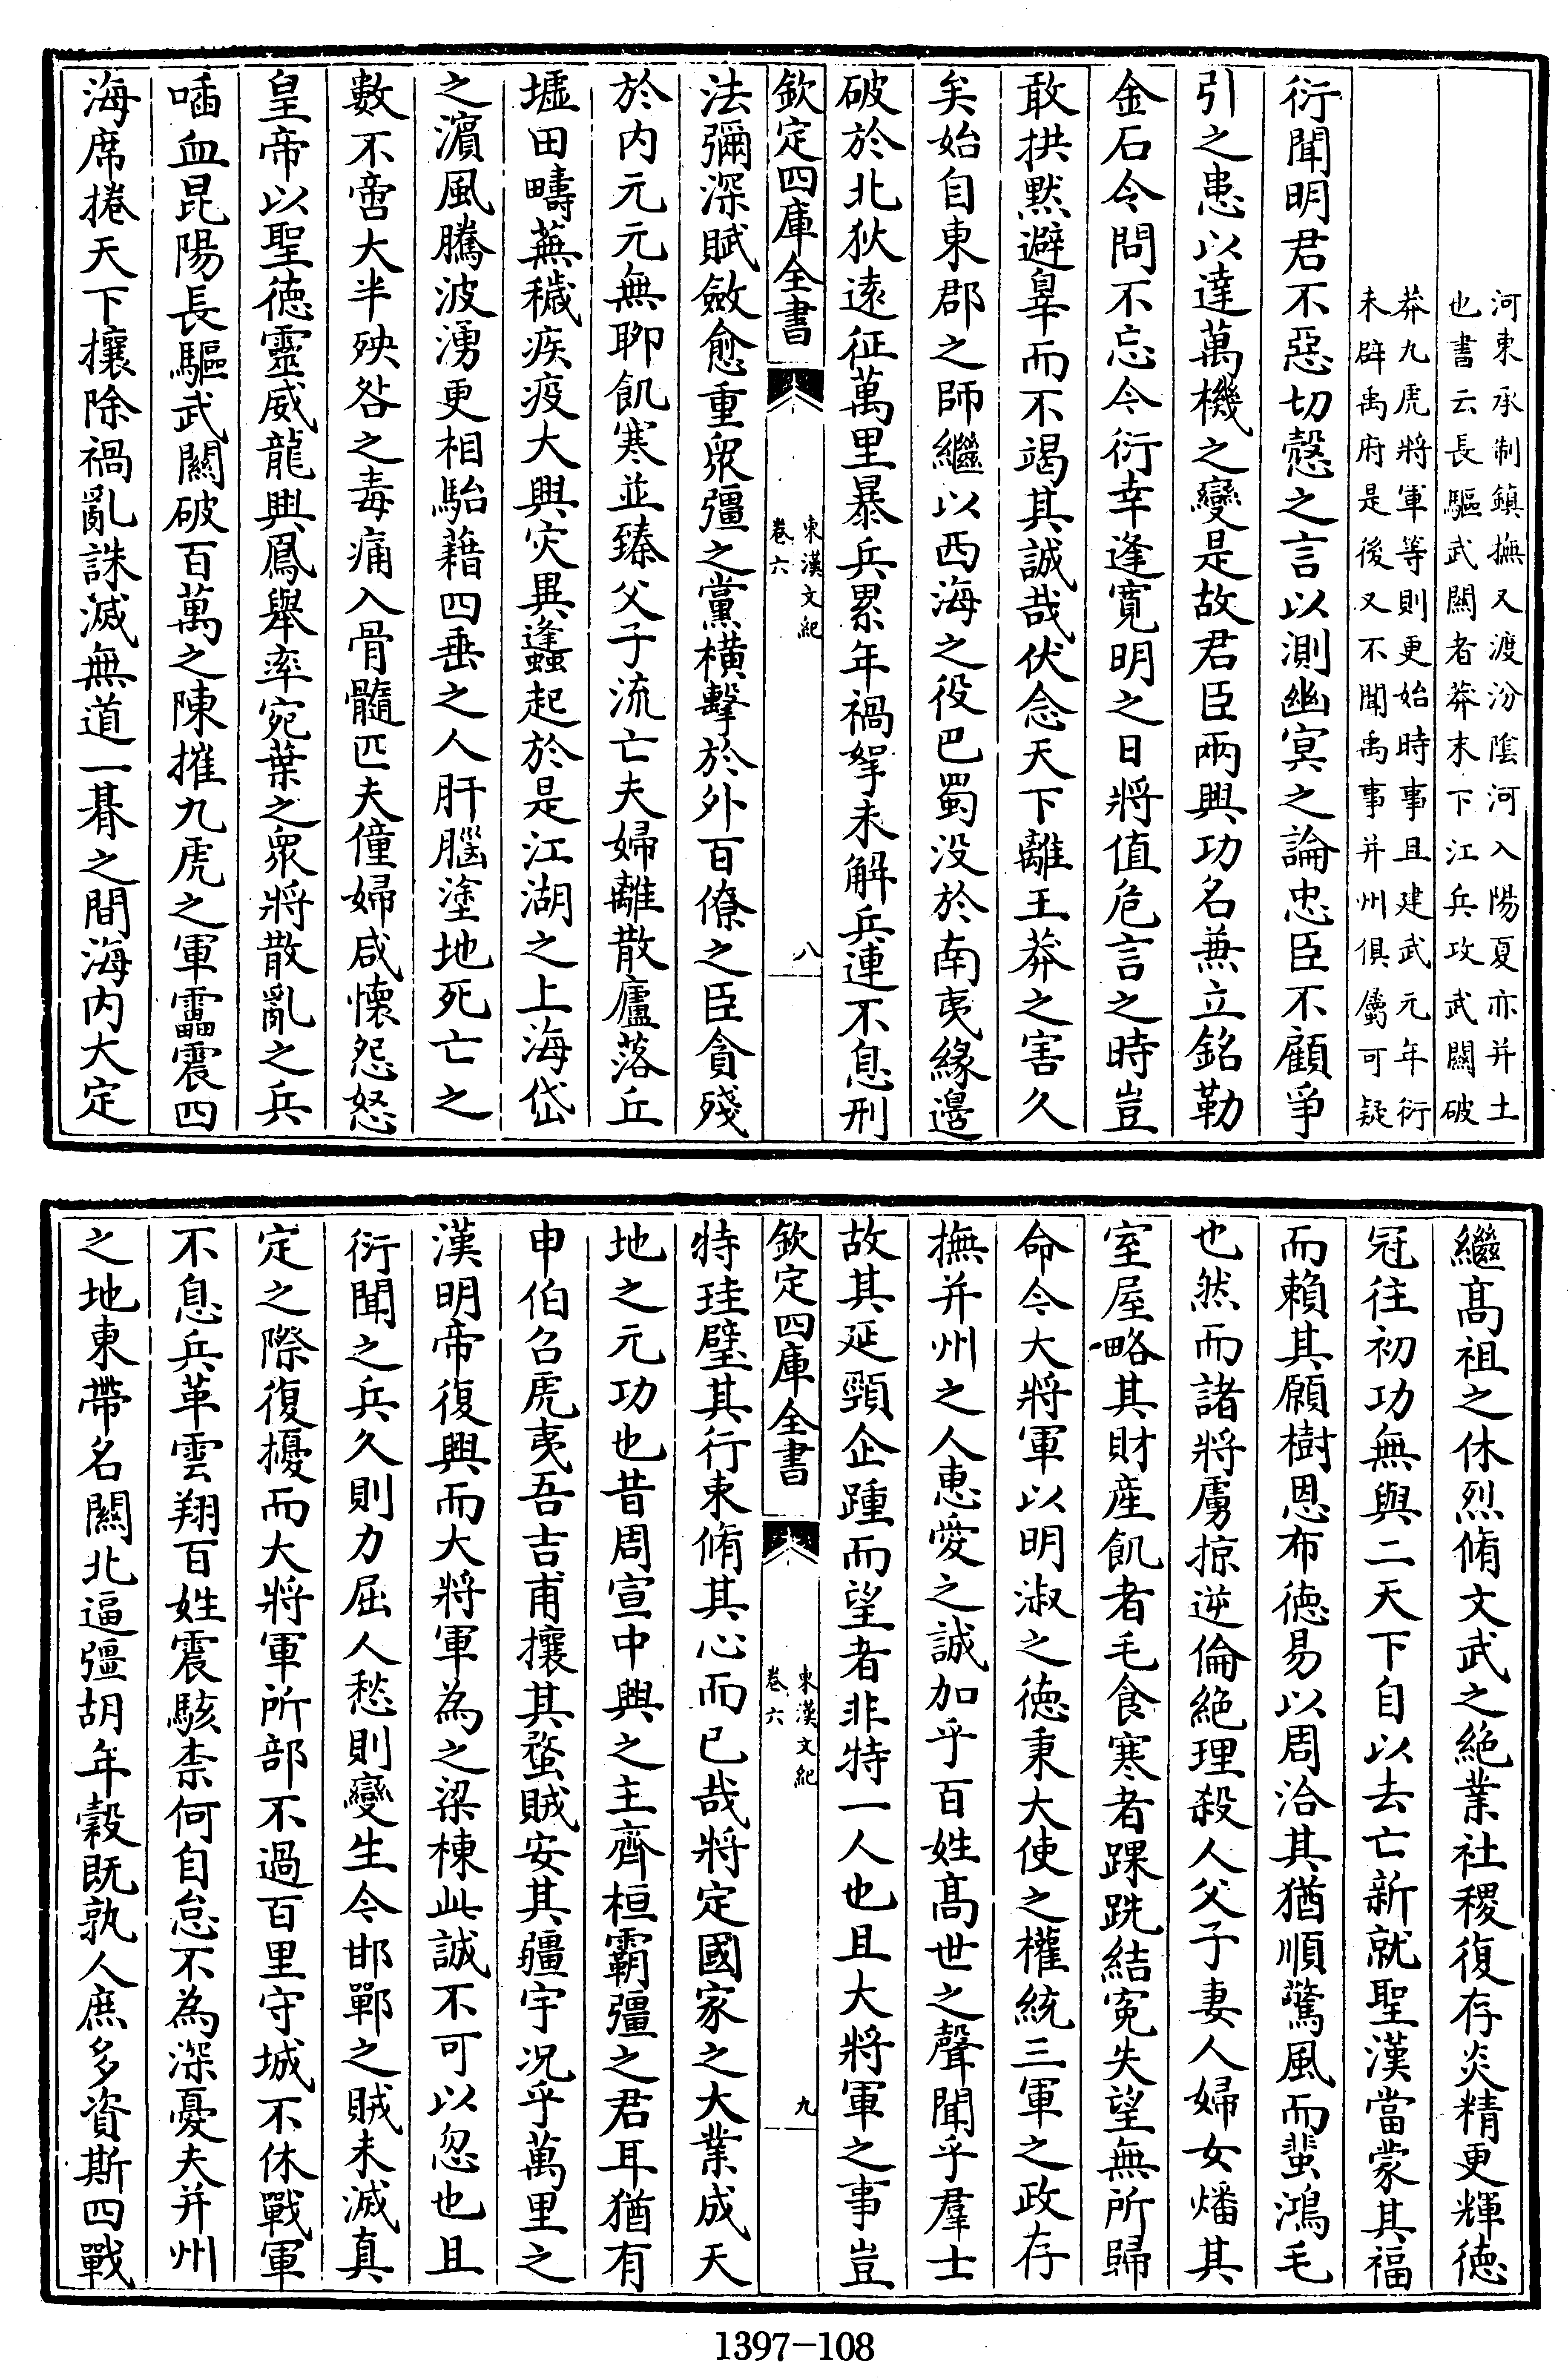 河東承制鎮撫又渡汾隂河入陽夏亦并土
也書云長驅武關者莽末下江兵攻武關破
莽九虎將軍等則更始時事且建武元年衍
未辟禹府是後又不聞禹事并州俱屬可疑
衍聞明君不惡切慤之言以測幽㝠之論忠臣不顧爭
引之患以達萬機之變是故君臣兩興功名兼立銘勒
金石令問不忘今衍幸逢寛明之日將值危言之時豈
敢拱黙避辠而不竭其誠哉伏念天下離王莽之害久
矣始自東郡之師繼以西海之役巴蜀没於南夷縁邊
破於北狄逺征萬里暴兵累年禍拏未解兵連不息刑
欽定四庫全書
東漢文紀
卷六
八
法彌深賦斂愈重衆彊之黨横擊於外百僚之臣貪殘
於内元元無聊飢寒並臻父子流亡夫婦離散廬落丘
墟田疇蕪穢疾疫大興灾異蠭起於是江湖之上海岱
之濵風騰波湧更相駘藉四垂之人肝腦塗地死亡之
數不啻大半殃咎之毒痛入骨髓匹夫僮婦咸懐怨怒
皇帝以聖徳靈威龍興鳳舉率宛葉之衆將散亂之兵
喢血昆陽長驅武關破百萬之陳摧九虎之軍靁震四
海席捲天下攘除禍亂誅滅無道一朞之間海内大定
繼髙祖之休烈脩文武之絶業社稷復存炎精更輝徳
冠往初功無與二天下自以去亡新就聖漢當蒙其福
而賴其願樹恩布徳易以周洽其猶順驚風而蜚鴻毛
也然而諸將虜掠逆倫絶理殺人父子妻人婦女燔其
室屋略其財産飢者毛食寒者踝跣結寃失望無所歸
命今大將軍以明淑之徳秉大使之權統三軍之政存
撫并州之人惠愛之誠加乎百姓髙世之聲聞乎羣士
故其延頸企踵而望者非特一人也且大將軍之事豈
欽定四庫全書
東漢文紀
卷六
九
特珪璧其行束脩其心而已哉將定國家之大業成天
地之元功也昔周宣中興之主齊桓霸彊之君耳猶有
申伯召虎夷吾吉甫攘其蝥賊安其疆宇况乎萬里之
漢明帝復興而大將軍為之梁棟此誠不可以忽也且
衍聞之兵久則力屈人愁則變生今邯鄲之賊未滅真
定之際復擾而大將軍所部不過百里守城不休戰軍
不息兵革雲翔百姓震駭柰何自怠不為深憂夫并州
之地東帶名關北逼彊胡年穀既孰人庶多資斯四戰
1397-108